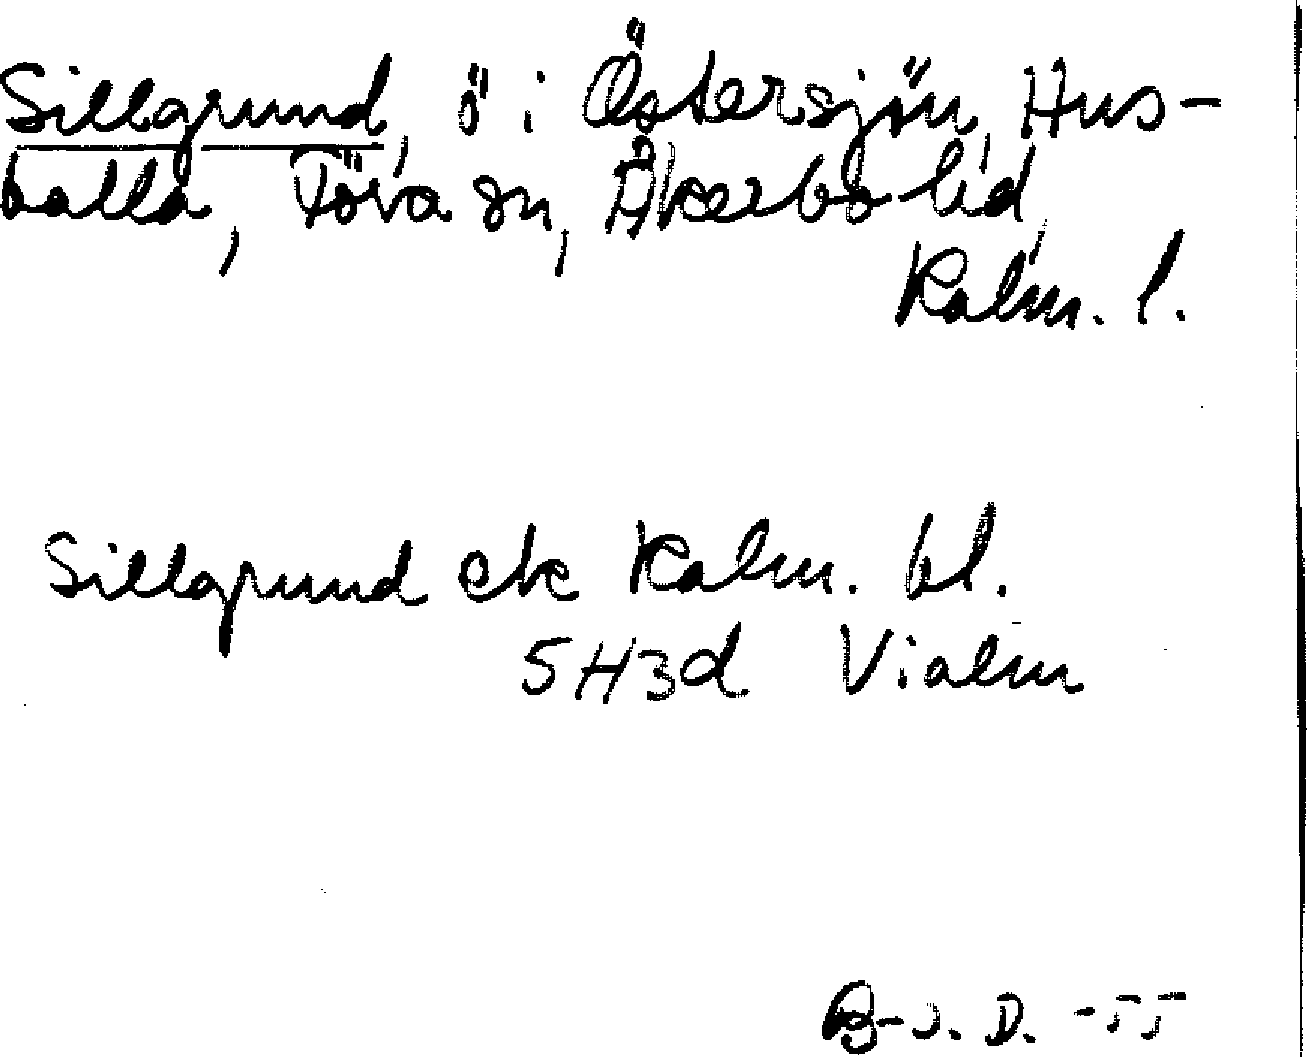 Sillgrund, ö i Östersjön, Hus-
valla, Föra sn, Åkerbo hd,
Kalm. l.
Sillgrund ek Kalm. bl.
5H3d Vialm
B-J. D. -55